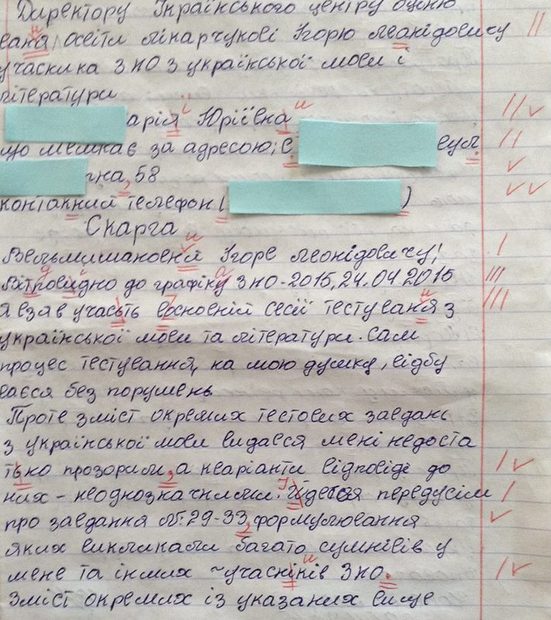 Директору Українського центру оціню
ваня освіти Лікарчукові Ігорю Леонідовичу
учасника ЗНО з української мови і
літератури
арія Юріївка
що мешкає за адресою: с вул
на, 58
контакний телефон ( )
Скарга
Вельмишановни Ігоре Леонідовичу!
до графіку ЗНО-2015, 24.04 2015
я взяв участь сесії тестуваня з
української мови та літератури. Сам
процес тестування, на мою думку, відбу
вався без порушень
Проте зміст окремих тестових завдань
з української мови видався мені недоста
тьно прозорим, а варіанти відповіді до
них - неоднозначними. Йдеться передусім
про завдання №: 29-33, формулювання
яких викликали багато сумнівів у
мене та інших учасніків ЗНО.
Зміст окремих із указаних вище